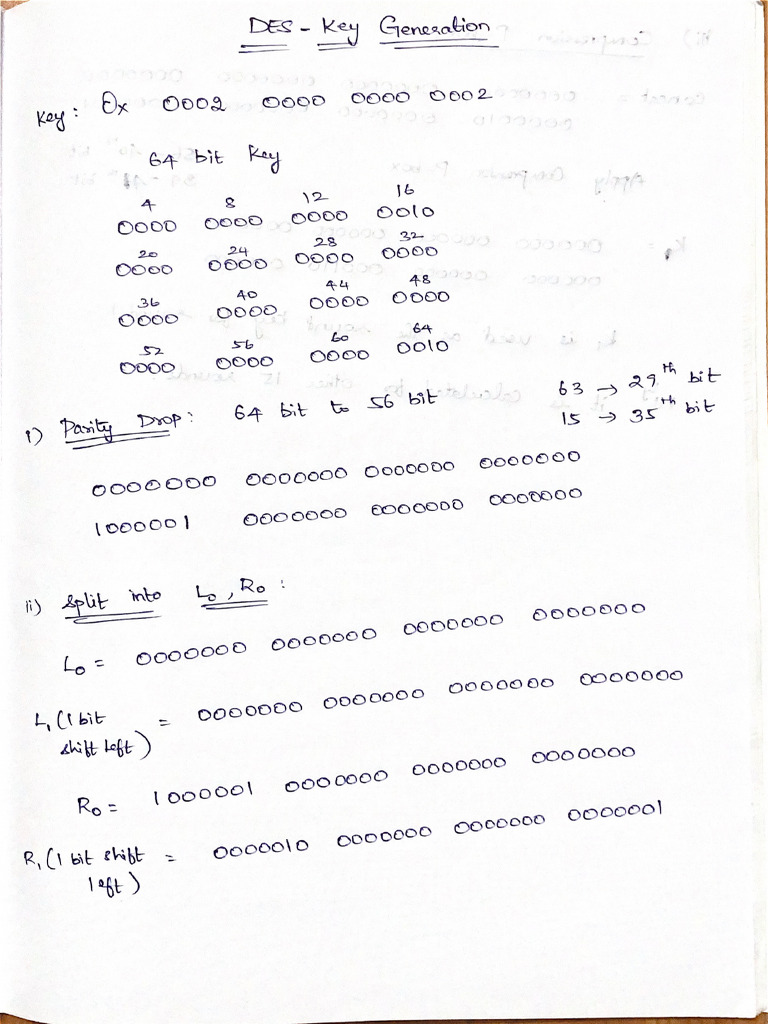 DES - Key Generation
Key: 0x 0002 0000 0000 0002
64 bit key
4 8 12 16
0000 0000 0000 0010
20 24 28 32
0000 0000 0000 0000
36 40 44 48
0000 0000 0000 0000
52 56 60 64
0000 0000 0000 0010
i) Parity Drop: 64 bit to 56 bit
63 → 29th bit
15 → 35th bit
0000000 0000000 0000000 0000000
1000001 0000000 0000000 0000000
ii) Split into L0, R0:
L0 = 0000000 0000000 0000000 0000000
L1 (1 bit shift left) = 0000000 0000000 0000000 0000000
R0 = 1000001 0000000 0000000 0000000
R1 (1 bit shift left) = 0000010 0000000 0000000 0000001